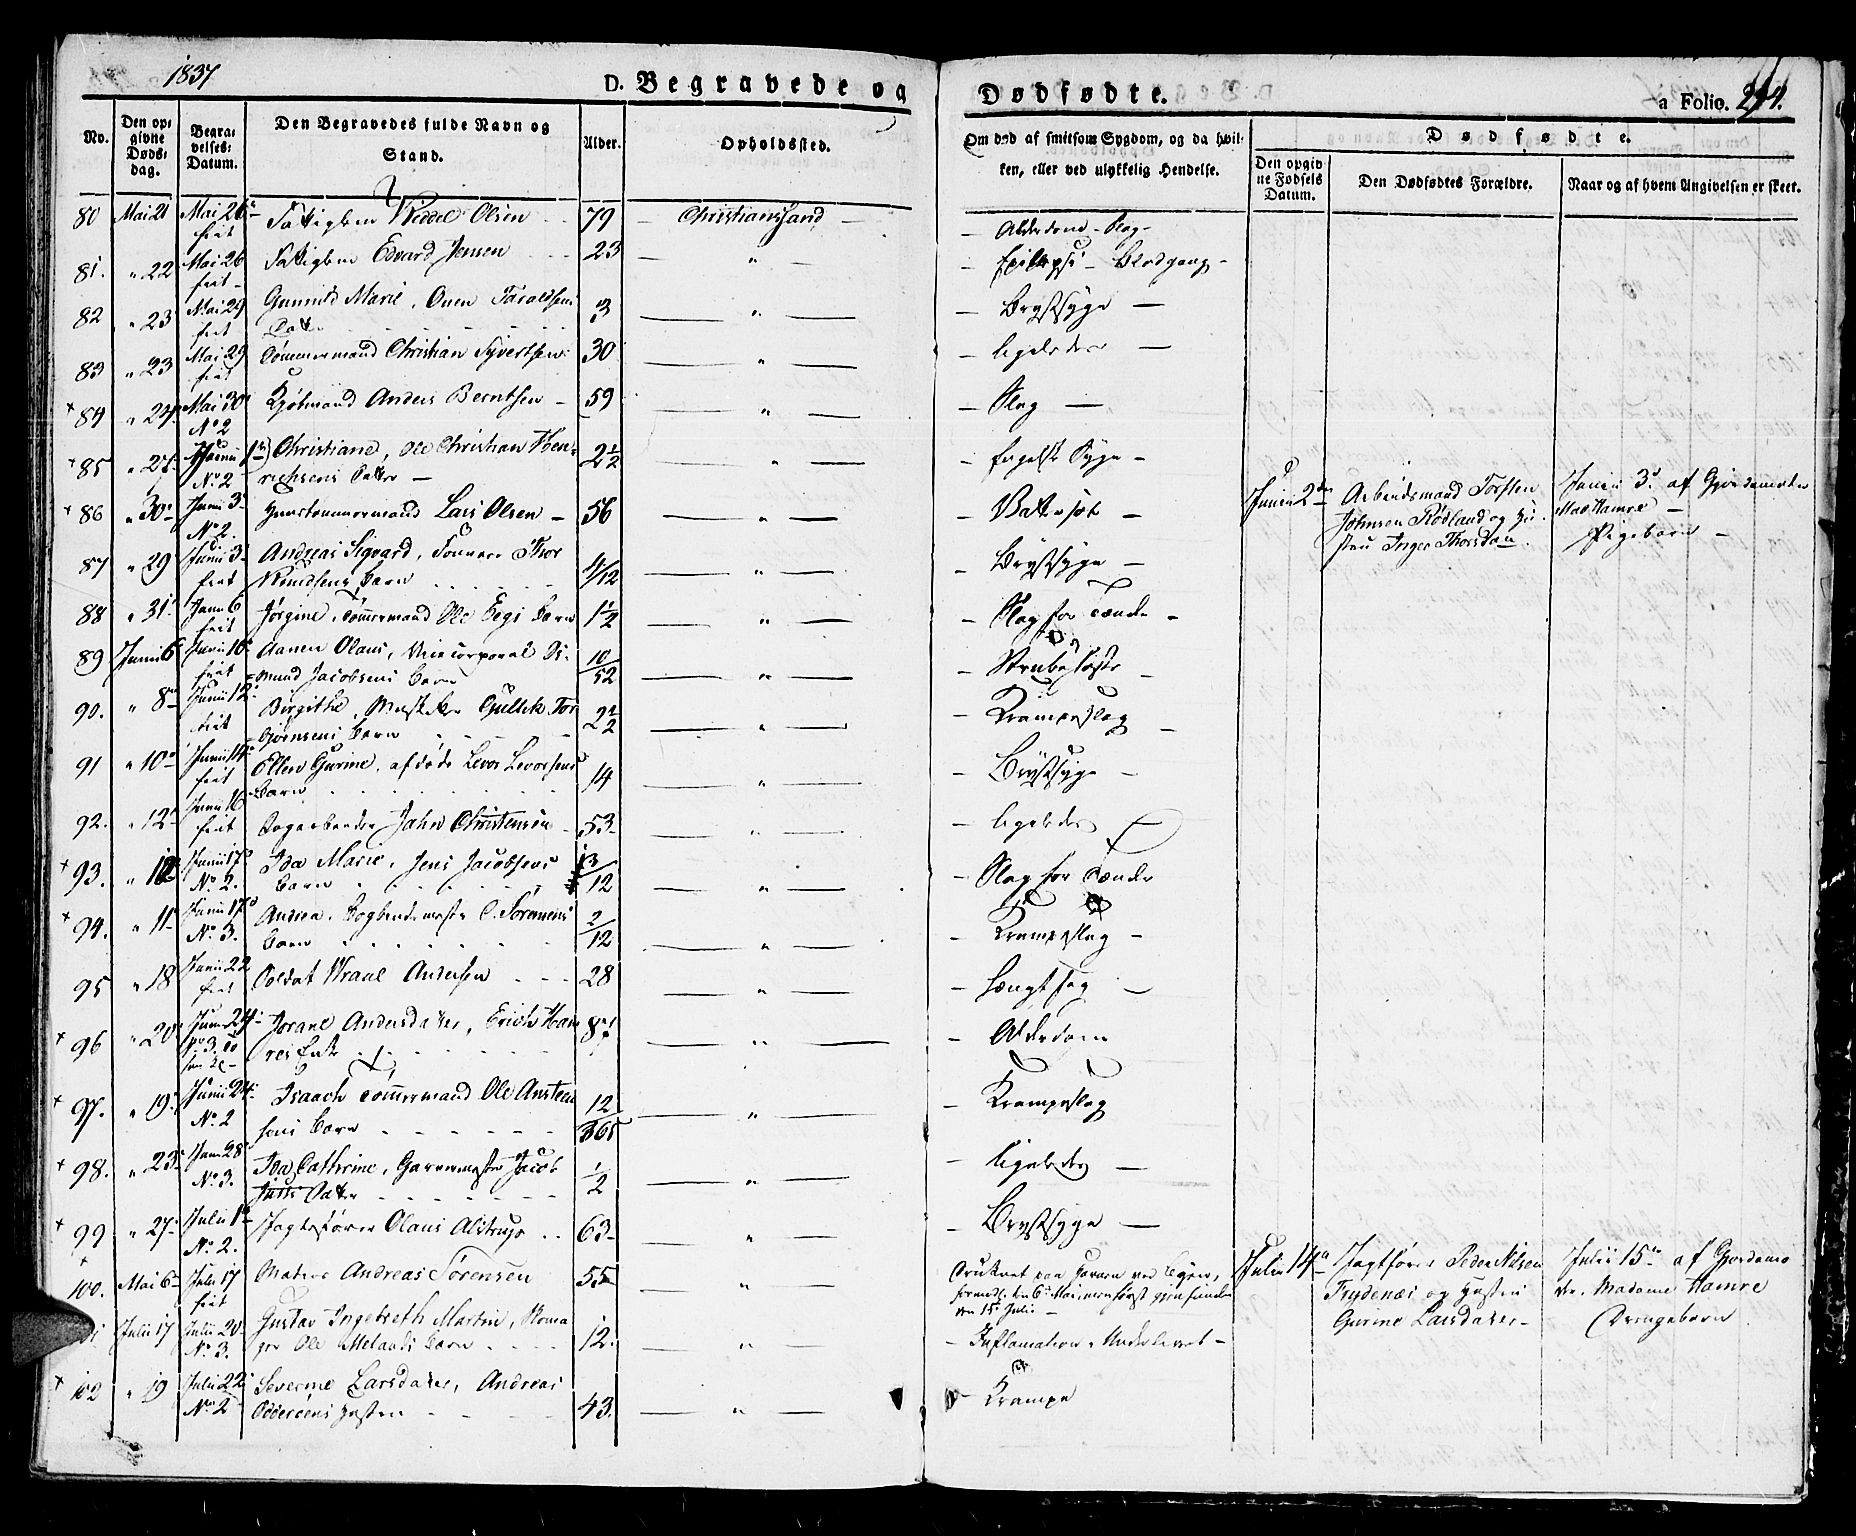 1837
D. Begravede og Dødfødte.
a Folio. 294.
No.
Den opgivne Dødsdag.
Begravelses-Datum.
Den Begravedes fulde Navn og Stand.
Alder.
Opholdssted.
Om død af smitsom Sygdom, og da hvilken, eller ved ulykkelig Hendelse.
Dødfødte.
Den opgivne Fødsels Datum.
Den Dødfødtes Forældre.
Naar og af hvem Angivelsen er skeet.
80 Mai 21 Mai 26 frit Fattiglem Olsen 79 Christianssand Alderdom - Slag
81. " 22 Mai 26 frit Fattiglem Edvard Jensen 23 " Epilepsi - Blodgang
82 " 23 Mai 29 frit Gunnild Marie, Onen Taraldsens
Datter 3 " Brystsyge
83 " 23 Mai 29 frit Tømmermand Christian Syvertsen 30 " ligeledes
+ 84 " 24 Mai 30 No 2 Kjøbmand Anders Berntsen 59 " Slag
+ 85 " 27 Junii 1 No 2 Christiane, Ole Christian Hen-
richsens Datter 2 1/2 " Engelsk Syge
+ 86 " 30 Junii 3 No 2. Huustømmermand Lars Olsen 56 " Vattersot
Junii 2den Arbeidsmand Torsten
Johnsen Rødland og Hu-
stru Inger Thorsdan.
Junii 3. af Gjordemoder
Mad Hamre
Pigebarn
87 " 29 Junii 3 frit Andreas Sigvard, Thor
Knudsens Barn 4/12 " Brystsyge
88 " 31 Junii 6 frit Jørgine, Tømmermand Ole Eegs Barn 1 1/2 " Slag for Tænder
89 Junii 6 Junii 10 frit Aanen Olaus, Vicecorporal Os-
mund Jacobsens Barn 10/52 " Strubehoste
90. " 8 Junii 12 frit Birgithe, Gullik Tor-
gjersens Barn 2 1/2 " Krampeslag
91 " 10 Junii 14 frit Ellen Gurine, afdøde Levor Levorsens
Barn 14 " Brystsyge
92. " 12 Junii 16 frit John Christensen 53 " ligeledes
+ 93. " 12 Junii 17 No. 2. Ida Marie, Jens Jacobsens
Barn 13/12 " Slag for Tænder
+ 94. " 11 Junii 17 No. 3. Andrea, Bogbindermester C. Sørensens
Barn 2/12 " Krampeslag
95 " 18 Junii 22 frit Soldat Wraal Andersen 28 "
+ 96 " 20 Junii 24 Jorane Andersdatter, Erich Ham-
res Enke 87 " Alderdom
+ 97. " 19 Junii 24 No. 2 Isaach Tømmermand Ole Ansteen-
sens Barn 12/365 " Krampeslag
+ 98. " 23 Juni 28 No. 3. Ida Cathrine, Garvermester Jacob
Juells Datter 1/2 " ligeledes
+ 99 " 27 Julii 1 No. 2. Jagtefører Olaus Alstrup 63 " Brystsyge
+ 100. Mai 6 Julii 17 frit Matros Andreas Sørensen 55 " Druknet paa Havnen ved Byen,
formedl. den 6te Mai, men først gjenfunden
den 15 Julii
Julii 14 Jagtfører Peder Nilsen
Frydenæs og Hustru
Gurine Larsdatter
Julii 15 af Gjordemo-
der, Madame Hamre
Drengebarn
Julii 17 Julii 20 No. 3. Gustav Ingebreth Martin,
Ole Melands Barn 12 " Inflamation i Underlivet
+ 102 " 19 Julii 22 No 2 Severine Larsdatter, Andreas
Odderøens Hustru 43. " Krampe